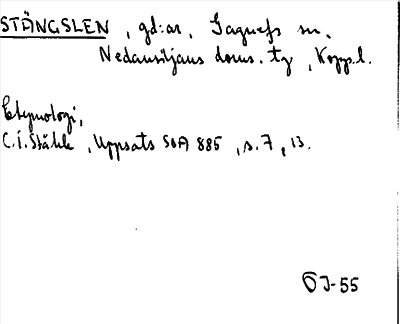 STÄNGSLEN, gd:ar, Gagnefs sn,
Nedansiljans doms. tg, Kopp.l.
Etymologi,
C.I. Ståhle, Uppsats SOA 885, s. 7, 13.
ÖJ-55